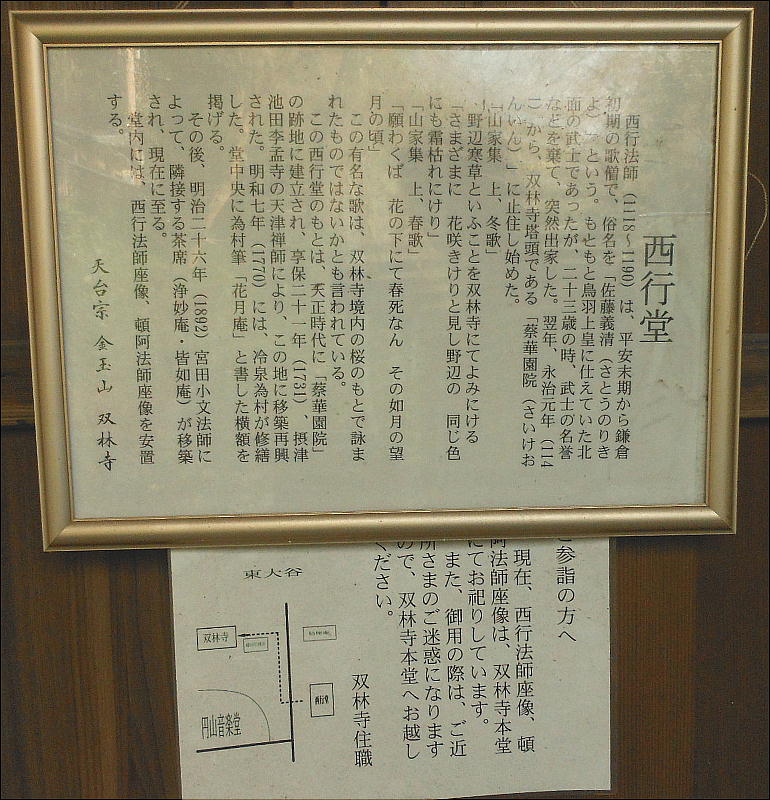 西行堂
西行法師（1118～1190）は、平安末期から鎌倉
初期の歌僧で、俗名を「佐藤義清（さとうのりき
よ）」という。もともと鳥羽上皇に仕えていた北
面の武士であったが、二十三歳の時、武士の名誉
などを棄て、突然出家した。翌年、永治元年（114
1）から、双林寺塔頭である「蔡華園院（さいけお
んいん）」に止住し始めた。
「山家集　上、冬歌」
、野辺寒草といふことを双林寺にてよみにける
「さまざまに　花咲きけりと見し野辺の　同じ色
にも霜枯れにけり」
「山家集　上、春歌」
「願わくば　花の下にて春死なん　その如月の望
月の頃」
この有名な歌は、双林寺境内の桜のもとで詠ま
れたものではないかとも言われている。
この西行堂のもとは、天正時代に「蔡華園院」
の跡地に建立され、享保二十一年（1731）、摂津
池田李孟寺の天津禅師により、この地に移築再興
された。明和七年（1770）には、冷泉為村が修繕
した。堂中央に為村筆「花月庵」と書した横額を
掲げる。
その後、明治二十六年（1892）宮田小文法師に
よって、隣接する茶席（浄妙庵・皆如庵）が移築
され、現在に至る。
堂内には、西行法師座像、頓阿法師座像を安置
する。
天台宗 金玉山 双林寺
ご参詣の方へ
現在、西行法師座像、頓
阿法師座像は、双林寺本堂
にてお祀りしています。
また、御用の際は、ご近
所さまのご迷惑になります
ので、双林寺本堂へお越し
ください。
双林寺住職
東大谷
双林寺
西行堂
円山音楽堂